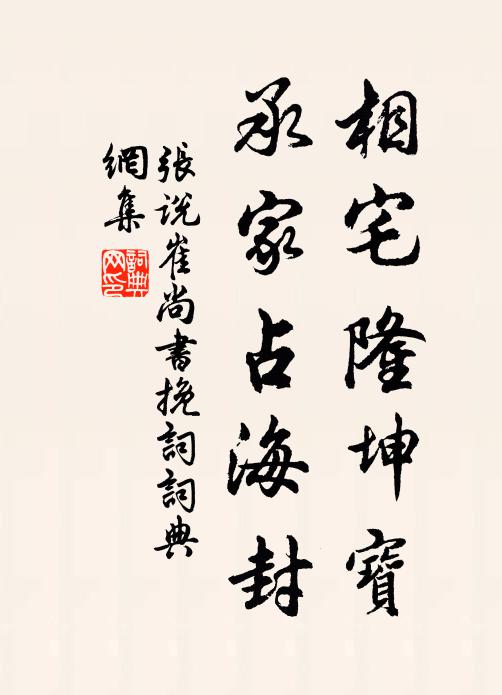 相宅隆坤寶
承家占海封
張説崔尚書挽詞詞典
網集
詞典网印